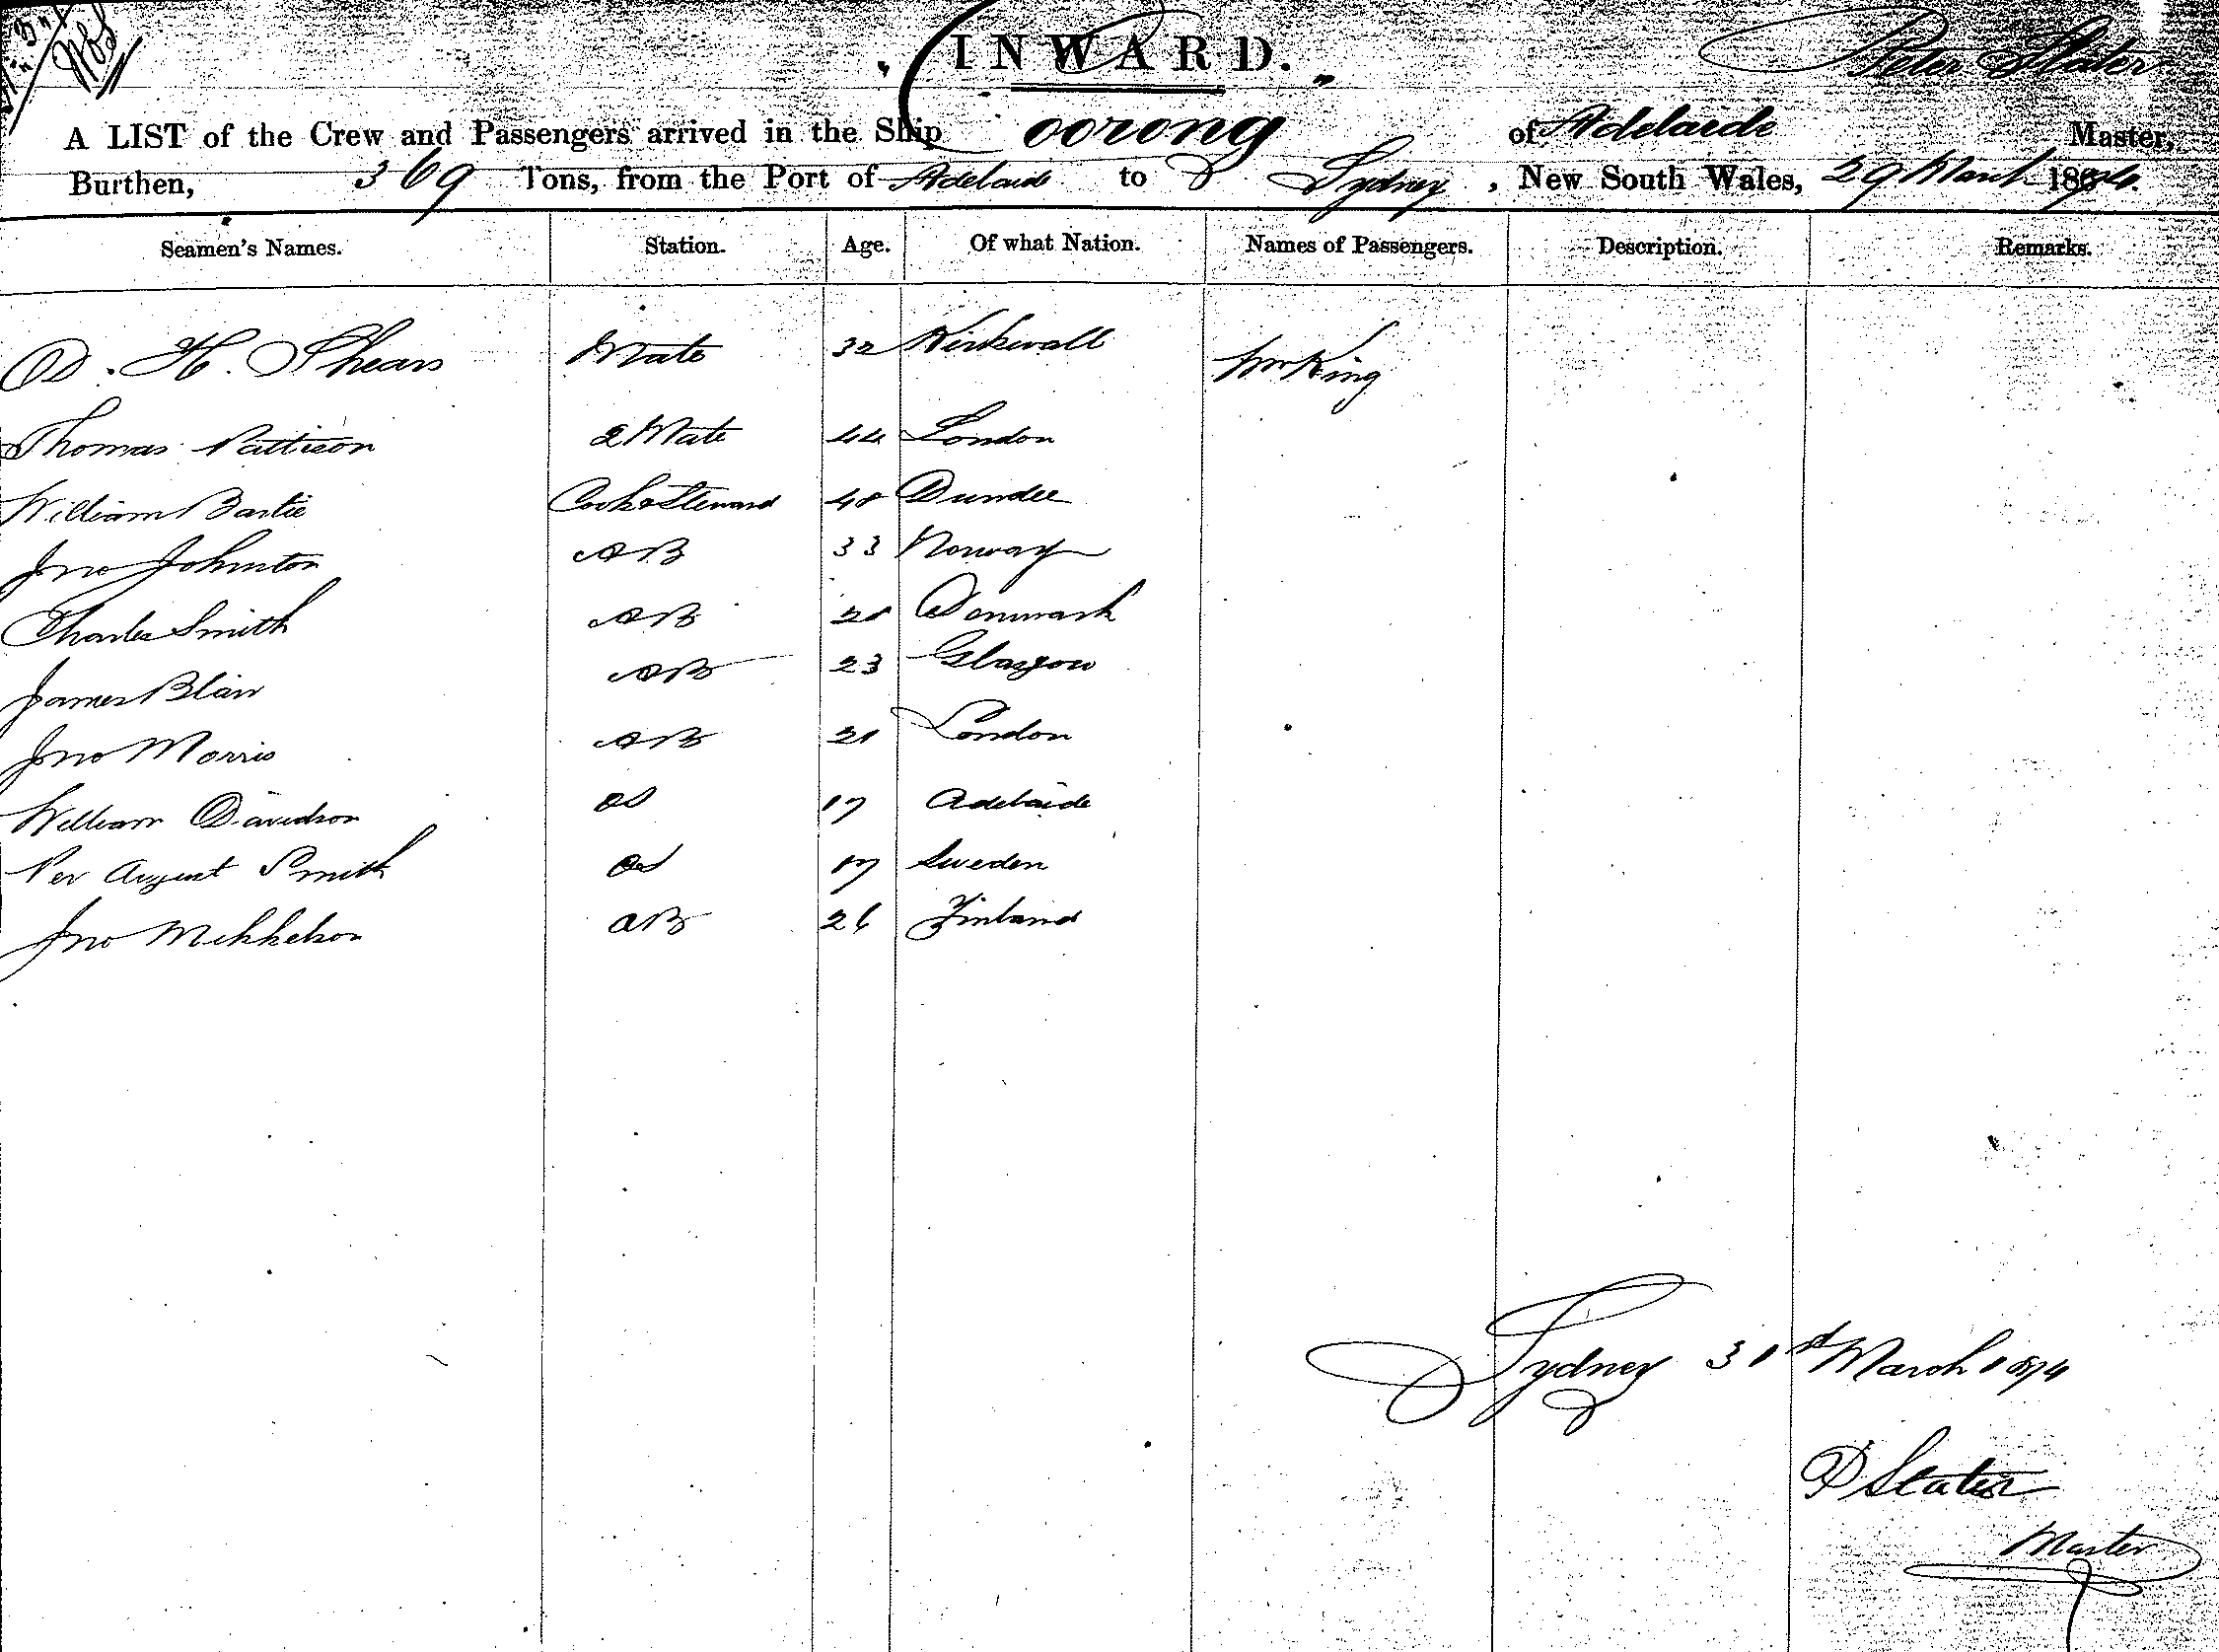 INWARD.
Peter Slater
A LIST of the Crew and Passengers arrived in the Ship Coorong of Adelaide Master,
Burthen, 369 Tons, from the Port of Adelaide to Sydney, New South Wales, 29 March 1874.
Seamen's Names. Station. Age. Of what Nation. Names of Passengers. Description. Remarks.
D. H. Shears Mate 32 Kirkwall Wm King
Thomas Pattison 2 Mate 44 London
William Bartie Cook & Steward 48 Dundee
Jno Johnston AB 33 Norway
Charles Smith AB Denmark
James Blair AB 23 Glasgow
Jno Morris AB 21 London
William Davidson OS 17 Adelaide
Per August Smith OS 17 Sweden
Jno Mikkelson AB 26 Finland
Sydney 31st March 1874
P Slater
Master